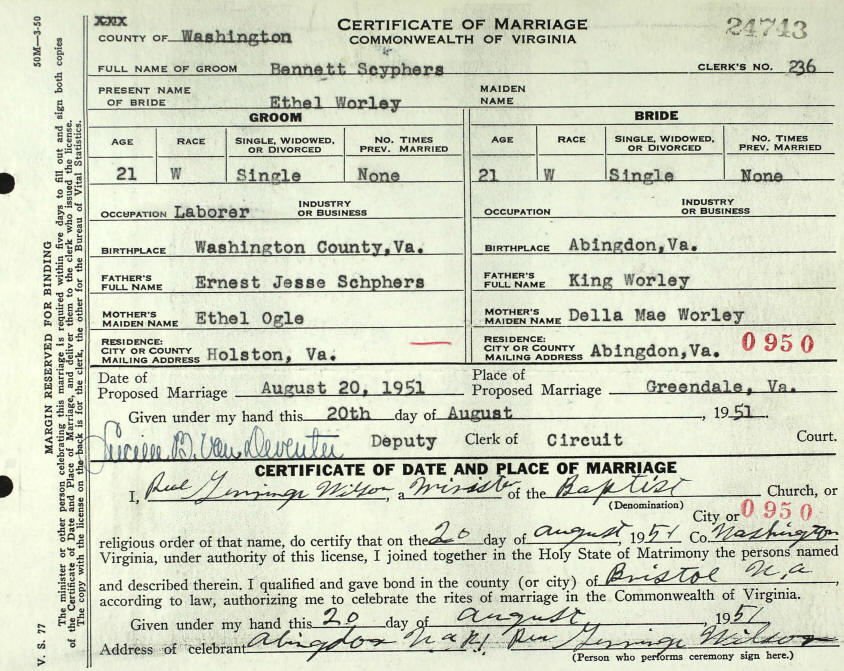 XXIX
CERTIFICATE OF MARRIAGE
24743
COUNTY OF Washington
COMMONWEALTH OF VIRGINIA
FULL NAME OF GROOM Bennett Scyphers CLERK'S NO. 236
PRESENT NAME OF BRIDE Ethel Worley MAIDEN NAME
GROOM BRIDE
AGE RACE SINGLE, WIDOWED, OR DIVORCED NO. TIMES PREV. MARRIED AGE RACE SINGLE, WIDOWED, OR DIVORCED NO. TIMES PREV. MARRIED
21 W Single None 21 W Single None
OCCUPATION Laborer INDUSTRY OR BUSINESS OCCUPATION INDUSTRY OR BUSINESS
BIRTHPLACE Washington County,Va. BIRTHPLACE Abingdon,Va.
FATHER'S FULL NAME Ernest Jesse Schphers FATHER'S FULL NAME King Worley
MOTHER'S MAIDEN NAME Ethel Ogle MOTHER'S MAIDEN NAME Della Mae Worley
RESIDENCE: CITY OR COUNTY MAILING ADDRESS Holston, Va. RESIDENCE: CITY OR COUNTY MAILING ADDRESS Abingdon,Va. 0950
Date of Proposed Marriage August 20, 1951 Place of Proposed Marriage Greendale, Va.
Given under my hand this 20th day of August, 1951.
Lucien B. Van Deventer Deputy Clerk of Circuit Court.
CERTIFICATE OF DATE AND PLACE OF MARRIAGE
I, Wilson, a Minister of the Baptist Church, or
(Denomination)
City or 0950
religious order of that name, do certify that on the 20 day of August, 1951 Co. Washington
Virginia, under authority of this license, I joined together in the Holy State of Matrimony the persons named
and described therein. I qualified and gave bond in the county (or city) of Bristol Va,
according to law, authorizing me to celebrate the rites of marriage in the Commonwealth of Virginia.
Given under my hand this 20 day of August, 1951
Address of celebrant Abingdon Va R1 Rev Wilson
(Person who performs ceremony sign here.)
V. S. 77
MARGIN RESERVED FOR BINDING
50M—3-50
The minister or other person celebrating this marriage is required within five days to fill out and sign both copies
of the Certificate of Date and Place of Marriage, and deliver them to the clerk who issued the license.
The copy with the license on the back is for the clerk, the other for the Bureau of Vital Statistics.